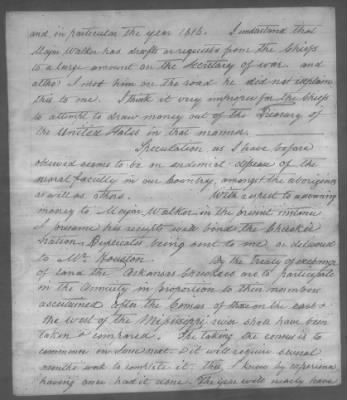 and in particular the year 1816. I understand that
Major Walker has drafts or requests from the Chiefs
to a large amount on the Secretary of war. and
altho I met him on the road he did not explain
this to me. I think it very improper for the Chiefs
to attempt to draw money out of the Treasury of
the United States in that manner.
Speculation as I have before
observed seems to be an endemial disease of the
moral faculty in our Country, amongst the aborigines
as well as others. With respect to advancing
money to Major Walker in the present instance
I presume his receipts will bind the
Nation. Duplicates being sent to me or delivered
to Mr Houston. By the treaty of exchange
of land the Arkansas Cherokees are to participate
in the Annuity in proportion to their numbers
ascertained upon the Census of those on the east &
the west of the Mississippi river shall have been
taken & compared. The taking the census is to
commence in June next. & it will require several
months work to complete it. this I know by experience
having once had it done. The year will nearly have